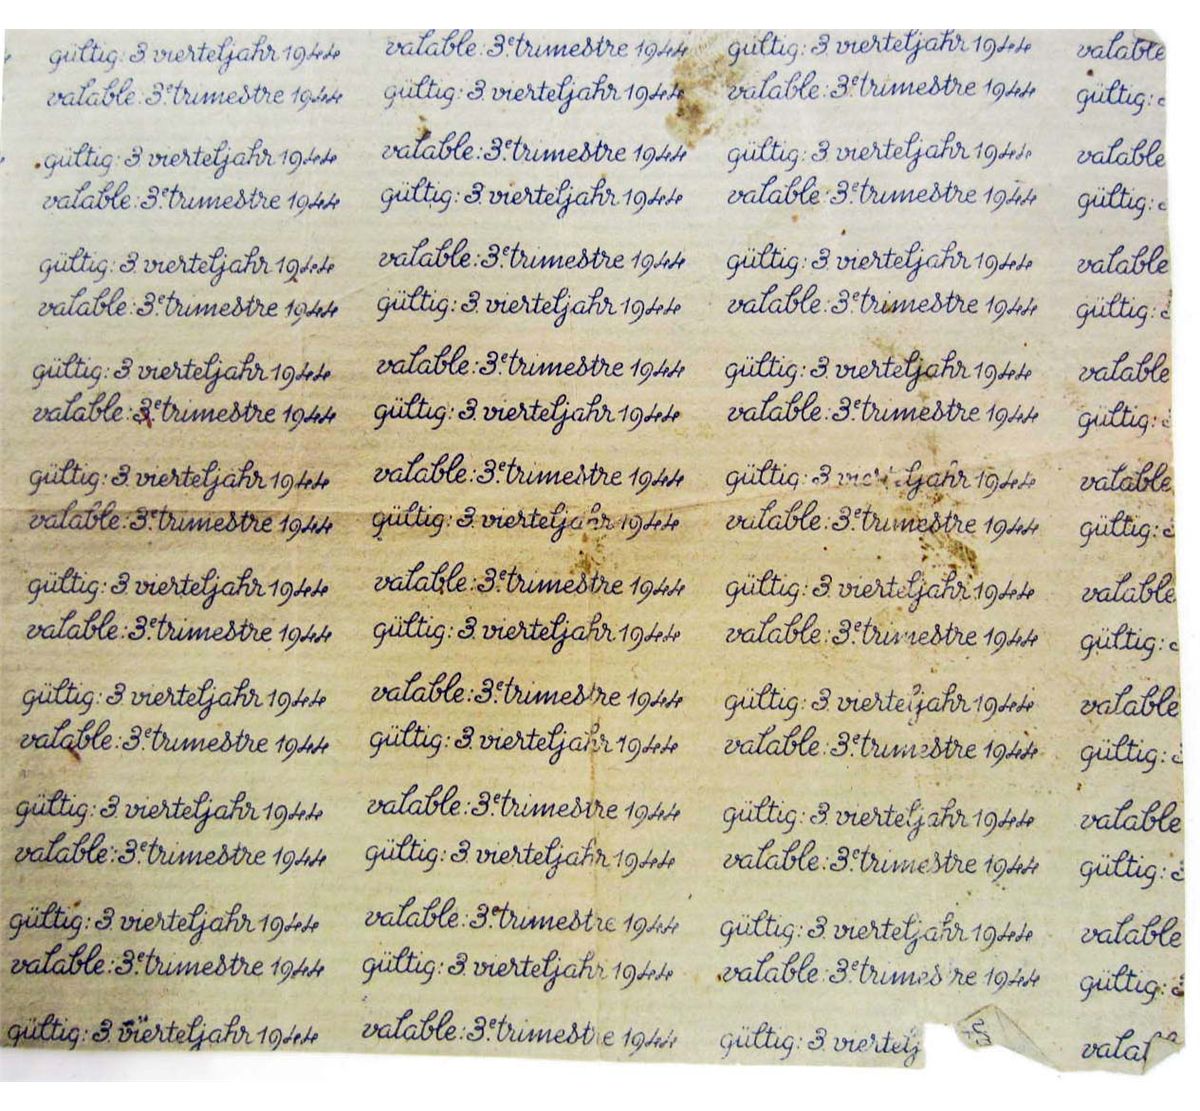 gültig: 3. vierteljahr 1944 valable: 3.ᵉ trimestre 1944 gültig: 3. vierteljahr 1944 valable
valable: 3.ᵉ trimestre 1944 gültig: 3. vierteljahr 1944 valable: 3.ᵉ trimestre 1944 gültig:
gültig: 3. vierteljahr 1944 valable: 3.ᵉ trimestre 1944 gültig: 3. vierteljahr 1944 valable
valable: 3.ᵉ trimestre 1944 gültig: 3. vierteljahr 1944 valable: 3.ᵉ trimestre 1944 gültig:
gültig: 3. vierteljahr 1944 valable: 3.ᵉ trimestre 1944 gültig: 3. vierteljahr 1944 valable
valable: 3.ᵉ trimestre 1944 gültig: 3. vierteljahr 1944 valable: 3.ᵉ trimestre 1944 gültig:
gültig: 3. vierteljahr 1944 valable: 3.ᵉ trimestre 1944 gültig: 3. vierteljahr 1944 valable
valable: 3.ᵉ trimestre 1944 gültig: 3. vierteljahr 1944 valable: 3.ᵉ trimestre 1944 gültig:
gültig: 3. vierteljahr 1944 valable: 3.ᵉ trimestre 1944 gültig: 3. vierteljahr 1944 valable
valable: 3.ᵉ trimestre 1944 gültig: 3. vierteljahr 1944 valable: 3.ᵉ trimestre 1944 gültig:
gültig: 3. vierteljahr 1944 valable: 3.ᵉ trimestre 1944 gültig: 3. vierteljahr 1944 valable
valable: 3.ᵉ trimestre 1944 gültig: 3. vierteljahr 1944 valable: 3.ᵉ trimestre 1944 gültig:
gültig: 3. vierteljahr 1944 valable: 3.ᵉ trimestre 1944 gültig: 3. vierteljahr 1944 valable
valable: 3.ᵉ trimestre 1944 gültig: 3. vierteljahr 1944 valable: 3.ᵉ trimestre 1944 gültig:
gültig: 3. vierteljahr 1944 valable: 3.ᵉ trimestre 1944 gültig: 3. vierteljahr 1944 valable
valable: 3.ᵉ trimestre 1944 gültig: 3. vierteljahr 1944 valable: 3.ᵉ trimestre 1944 gültig:
gültig: 3. vierteljahr 1944 valable: 3.ᵉ trimestre 1944 gültig: 3. vierteljahr 1944 valable
valable: 3.ᵉ trimestre 1944 gültig: 3. vierteljahr 1944 valable: 3.ᵉ trimestre 1944 gültig:
gültig: 3. vierteljahr 1944 valable: 3.ᵉ trimestre 1944 gültig: 3. viertelj